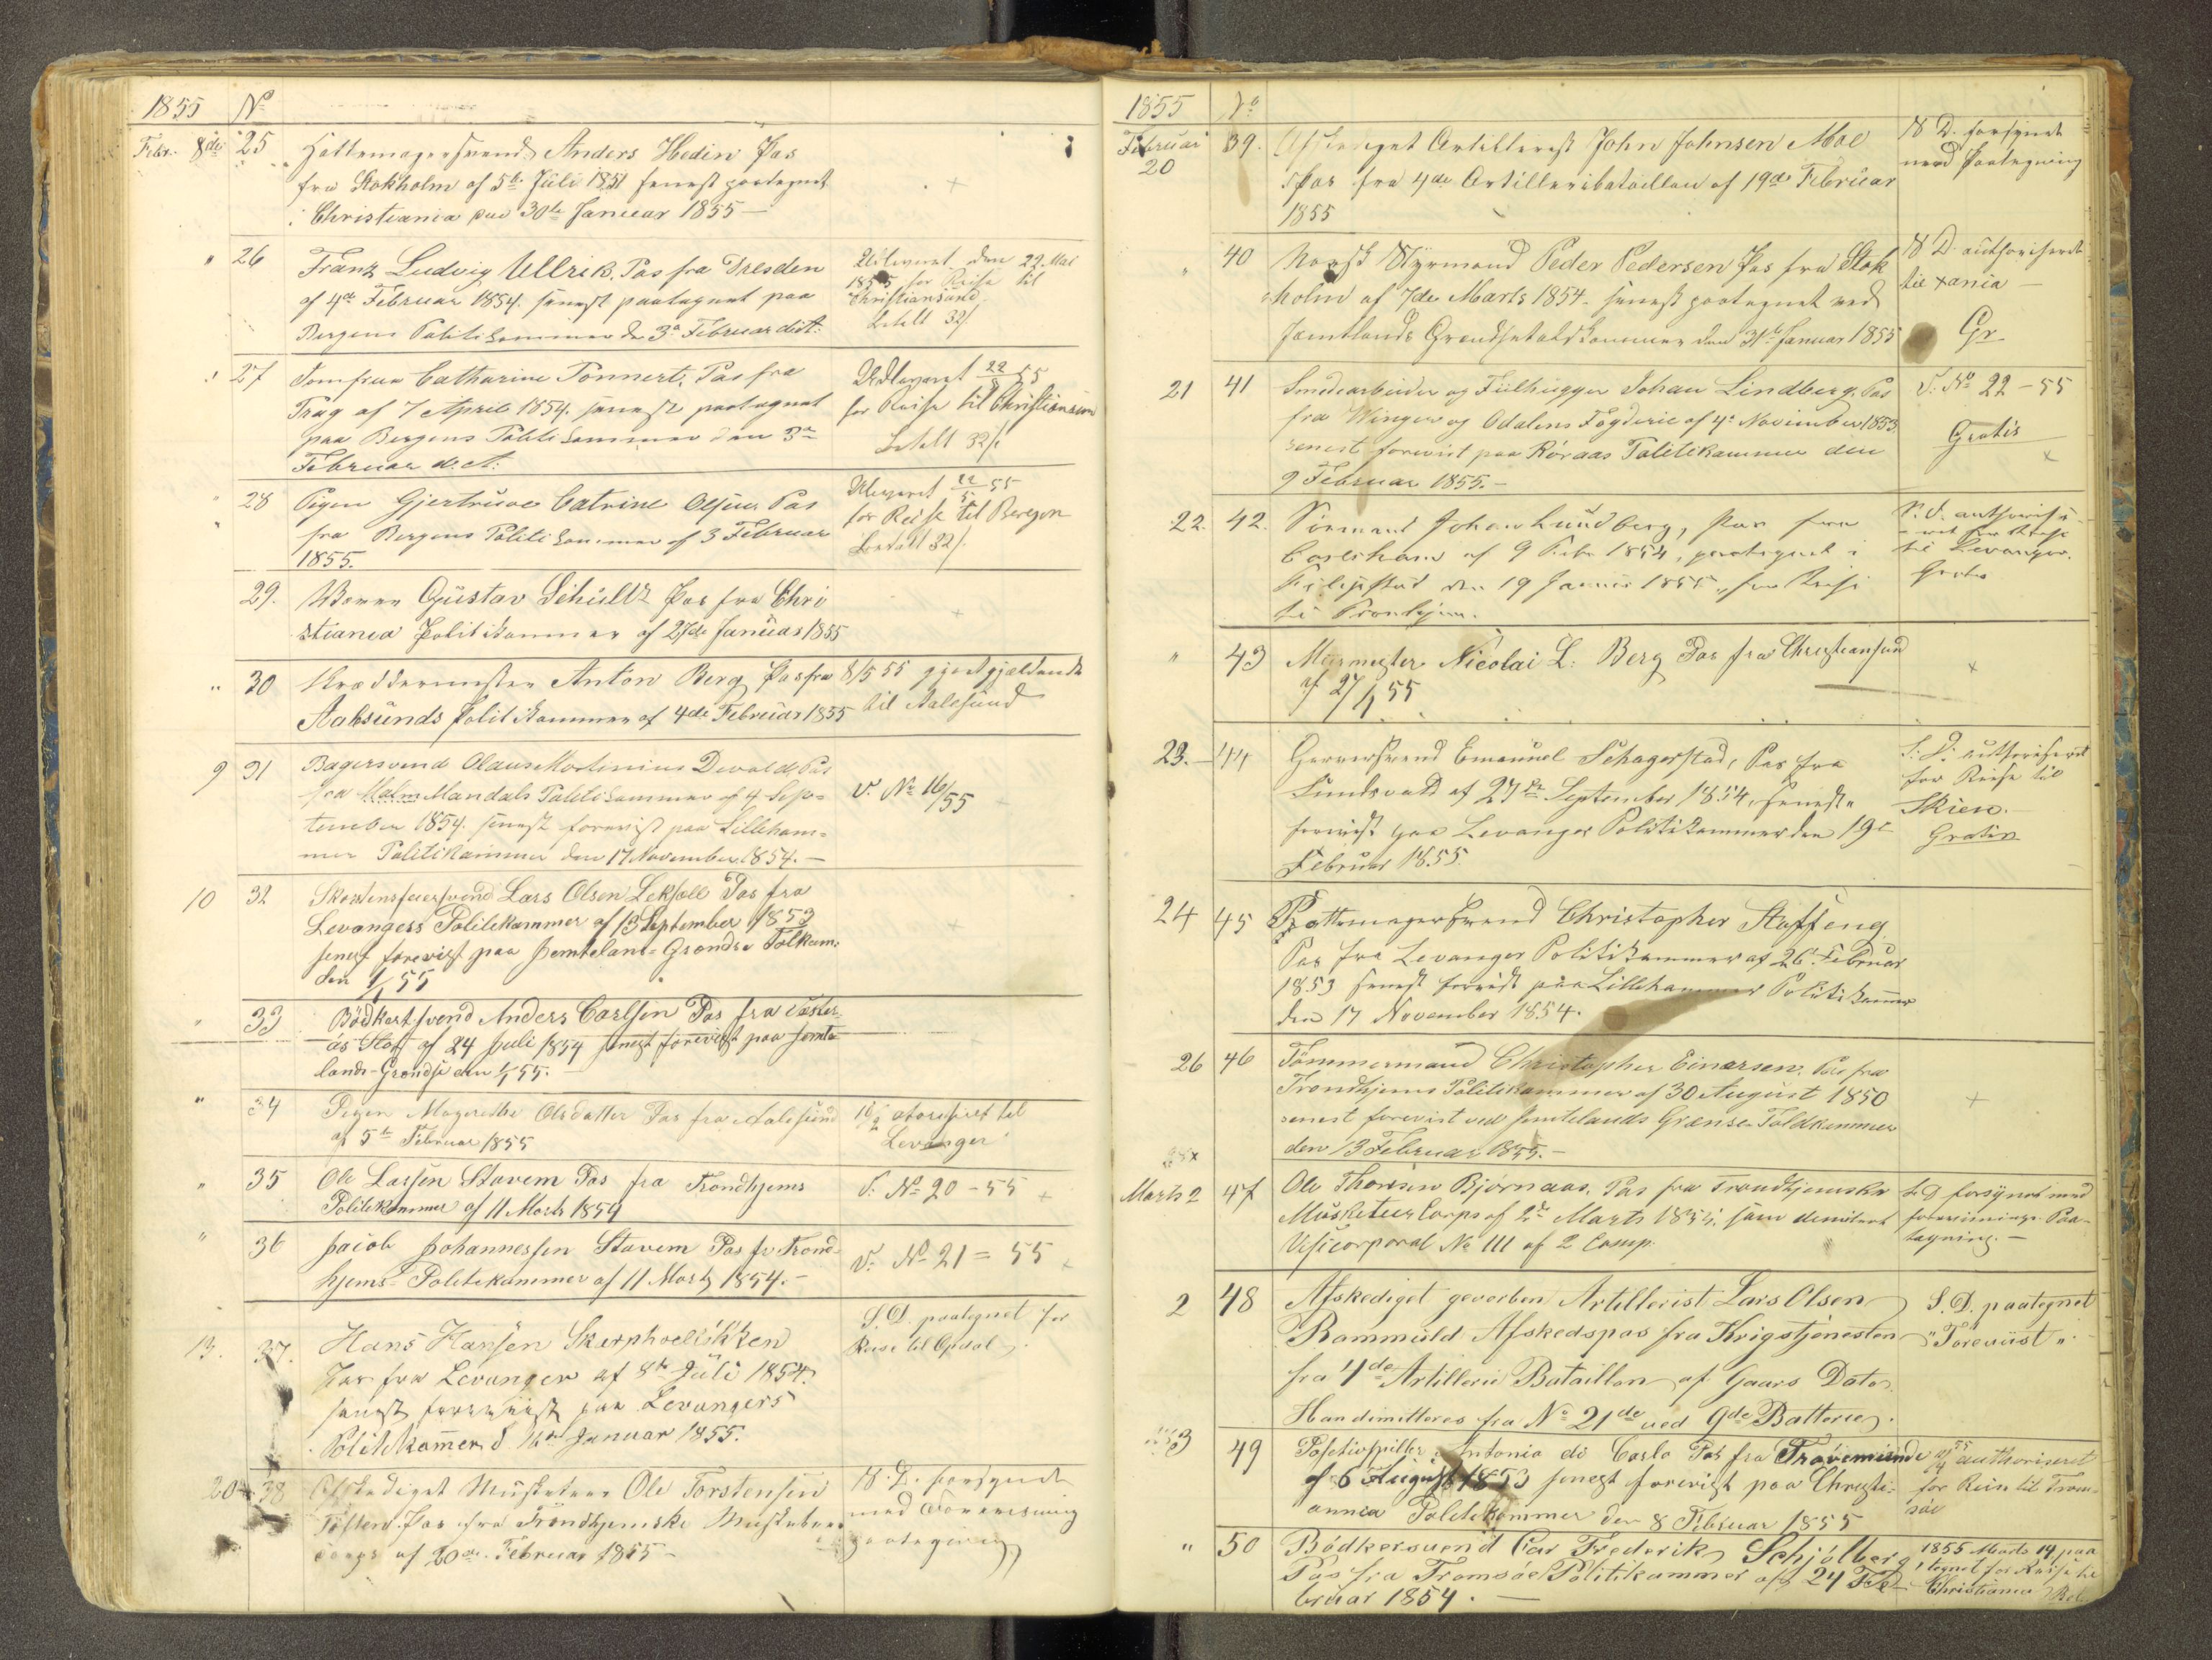 1855 No
Febr. 8de 25 Hattemagersvend Anders Hedin Pas
fra Stokholm af 5te Juli 1851 senest paategnet
i Christiania den 30te Januar 1855 —
" 26 Franz Ludvig Ullrik. Pas fra Dresden
af 4de Februar 1854. senest paategnet paa
Bergens Politikammer d. 3die Februar d.A:
Udleveret den 22. Mai
1855 for Reise til
Christiansund
Betalt 32/.
" 27 Jomfrue Catharine Tonnert. Pas fra
Prag af 7 April 1854. senest paategnet
paa Bergens Politikammer den 3die
Februar d.A:
Udleveret 22/5 55
for Reise til Christiansund
Betalt 32/.
" 28 Pigen Gjertrude Catrine Olsen Pas
fra Bergens Politikammer af 3 Februar
1855.
Udleveret 22/5 55
for Reise til Bergen
Betalt 32/.
29. Gustav Schultz Pas fra Chri
stiania Politikammer af 27de Januar 1855
" 30 Skreddermester Anton Berg Pas fra
Aalesunds Politikammer af 4de Februar 1855
8/5 55 gjengjældende
til Aalesund
9 31 Bagersvend Olaus Mortinius Devold, Pas
fra Malm Mandals Politikammer af 4 Sep-
tember 1854. senest forevist paa Lilleham-
mer Politikammer den 17 November 1854. —
V. No 16/55
10 32 Skorstensfeiersvend Lars Olsen Leksell Pas fra
Levangers Politikammer af 13 September 1853
senest forevist paa Jemteland-Grændse Tolkam.
den 1/1 55
" 33 Bödkersvend Anders Carlsen Pas fra Vester-
ås Slot af 24 Juli 1854 senest forevist paa Jemte
lands-Grændse den 1/1 55. —
" 34 Pigen Magrethe Olsdatter Pas fra Aalesund
af 5te Februar 1855
10/2 atoriseret til
Levanger
" 35 Ole Larsen Stavem Pas fra Trondhjems
Politikammer af 11 Marts 1854
V. No 20 - 55
" 36 Jacob Johannessen Stavem Pas fr Trond-
hjems Politikammer af 11 Marts 1854. —
V. No 21 = 55
13. 37. Hans Hansen Skarphoelükken
Pas fra Levanger af 8te Juli 1854.
senest foreviist paa Levangers
Politikammer d 16de Januar 1855.
S. D. paategnet for
Reise til Opdal
20 38 Afskediget Musketeer Ole Torstensen
Pas fra Trondhjemske Musketeer
Corps af 20de Februar 1855 —
S. D. forsynet
med Forevisnings
paategning
1855 No
Februar 20 39. Afskediget Artillerist John Johnsen Moe
Pas fra 4de Artilleribataillon af 19de Februar
1855
S D. forsynet
med Paategning
" 40 Norsk Styrmand Peder Pedersen Pas fra Stok
holm af 7de Marts 1854. senest paategnet ved
Jemtlands Grændsetoldkammer den 31te Januar 1855
S D. authoriseret
til Xania —
Gr
21 41 Smedearbeider og Fiilhugger Johan Lindberg, Pas
fra Winger og Odalens Fogderie af 4de November 1853
senest forevist paa Röraas Politikammer den
9 Februar 1855. —
V. No 22 - 55
Gratis
22. 42. Johan Lundberg, Pas fra
Carlshamn af 9 1854, paategnet i
den 19 Januar 1855 for Reise
til Trondhjem.
S. D. authorise-
ret for Reise
til Levanger.
Gratis
" 43 Muurmester Nicolai L. Berg Pas fra Christiansund
af 27/1 55
23. 44 Garversvend Emanuel Schagerstad, Pas fra
Sundsvald af 27de September 1854, senest
forevist paa Levanger Politikammer den 19de
Februar 1855.
S. D. authoriseret
for Reise til
Skien.
Gratis
24 45 Pottemagersvend Christopher Staffeng
Pas fra Levanger Politikammer af 26 Februar
1853 senest forevist paa Lillehammer Politikammer
den 17 November 1854.
26 46 Tömmermand Christopher Einersen. Pas fra
Trondhjems Politikammer af 30 August 1850
senest forevist ved Jemtelands Grænse-Toldkammer
den 13 Februar 1855. —
Marts 2 47 Ole Thoresen Bjørnaas. Pas fra Trondhjemske
Musketeer Corps af 2de Marts 1855. som dimiteret
Vicecorporal No 111 af 2 Comp.
S. D forsynet med
forevisnings Paa-
tegning. —
2 48 Afskediget geverben Artillerist Lars Olsen
Rammuld Afskedspas fra Krigstjenesten
fra 4de Artillerie Bataillon af Gaars Dato.
Han dimitteres fra No 21de ved 9de Batterie.
S. D. paategnet
"Foreviist".
3 49 Positivspiller Antonio de Carlo Pas fra Travemünde
af 6 August 1853 senest forevist paa Christi-
annia Politikammer den 8 Februar 1855
authoriseret
for Reise til Trom-
söe
" 50 Bödkersvend Car Frederik Schjölberg
Pas fra Tromsöe Politikammer af 24 Fe-
bruar 1854. —
1855 Marts 14 paa
tegnet for Reise til
Christiania